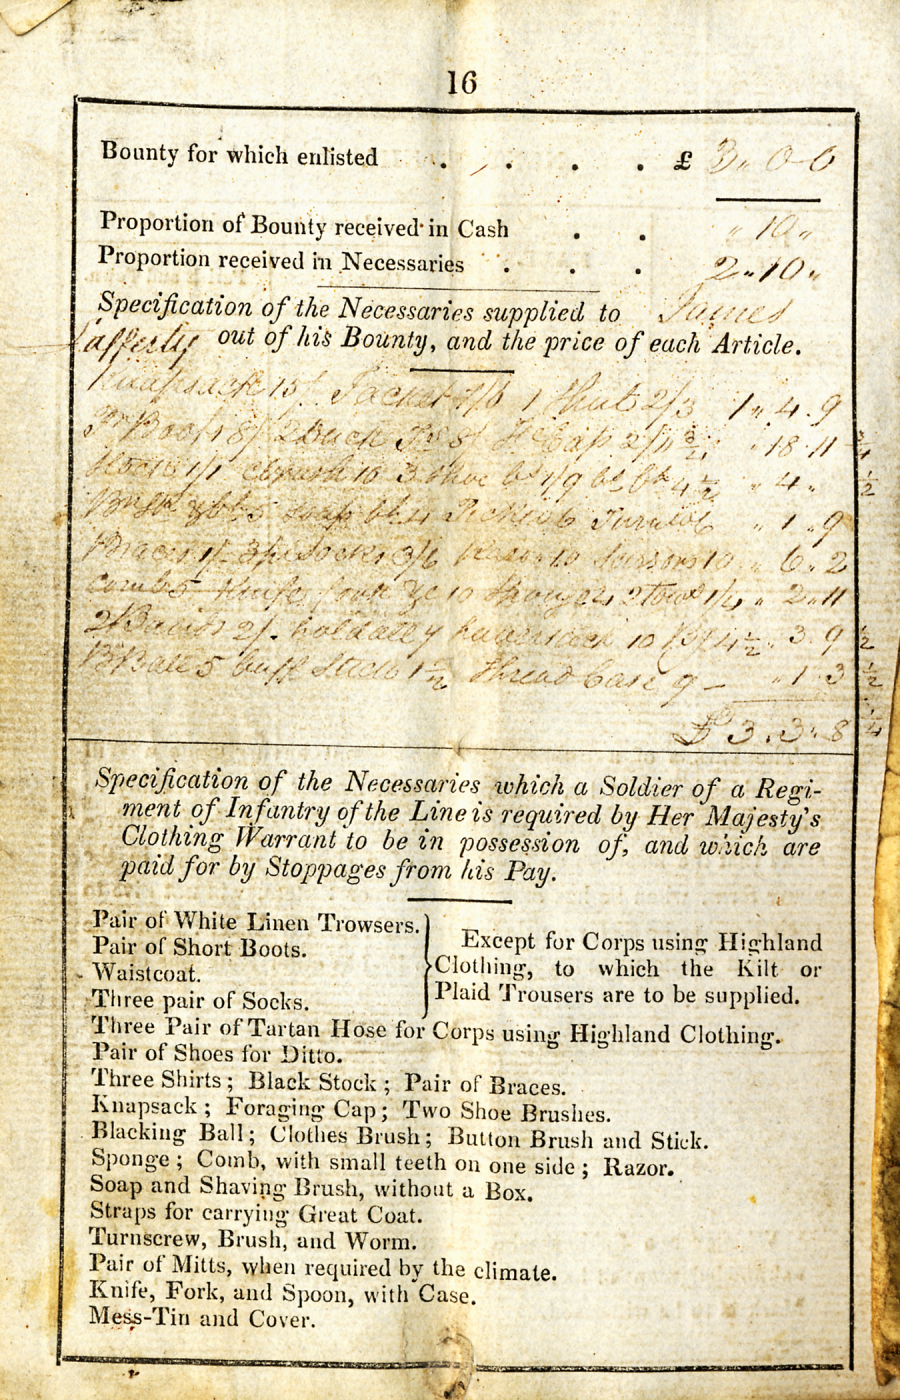 16
Bounty for which enlisted . . . . £ 3 " 0 - 0
Proportion of Bounty received in Cash . . " 10 "
Proportion received in Necessaries . . . 2 " 10 "
Specification of the Necessaries supplied to James
Lafferty out of his Bounty, and the price of each Article.
Knapsack 15/ Jacket 7/6 1 Shirt 2/3 1 " 4 . 9
Pr Boots 8/ 2 Duck 2/11 3/4 " 18 . 11 3/4
1/1 brush 10 3 1/9 4 1/2 " 4 " 1/2
5 Soap 4 6 6 " 1 " 9
Braces 1/ 3 pr Socks 3/6 Razor 10 Scissors 10 " 6 " 2
Comb 5 Knife fork &c 10 Sponge 4 2 Towels 1/4 " 2 " 11
2 2/. holdall 7 haversack 10 4 1/2 " 3 . 9 1/2
B Ball 5 buff Stick 1 1/2 Thread Case 9 — " 1 . 3 1/2
£ 3 . 3 . 8 1/4
Specification of the Necessaries which a Soldier of a Regi-
ment of Infantry of the Line is required by Her Majesty's
Clothing Warrant to be in possession of, and which are
paid for by Stoppages from his Pay.
Pair of White Linen Trowsers.
Pair of Short Boots.
Waistcoat.
Three pair of Socks.
Except for Corps using Highland
Clothing, to which the Kilt or
Plaid Trousers are to be supplied.
Three Pair of Tartan Hose for Corps using Highland Clothing.
Pair of Shoes for Ditto.
Three Shirts; Black Stock; Pair of Braces.
Knapsack; Foraging Cap; Two Shoe Brushes.
Blacking Ball; Clothes Brush; Button Brush and Stick.
Sponge; Comb, with small teeth on one side; Razor.
Soap and Shaving Brush, without a Box.
Straps for carrying Great Coat.
Turnscrew, Brush, and Worm.
Pair of Mitts, when required by the climate.
Knife, Fork, and Spoon, with Case.
Mess-Tin and Cover.